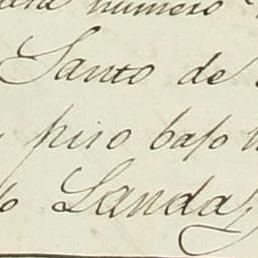 numero
Santo de
piso bajo
Landa